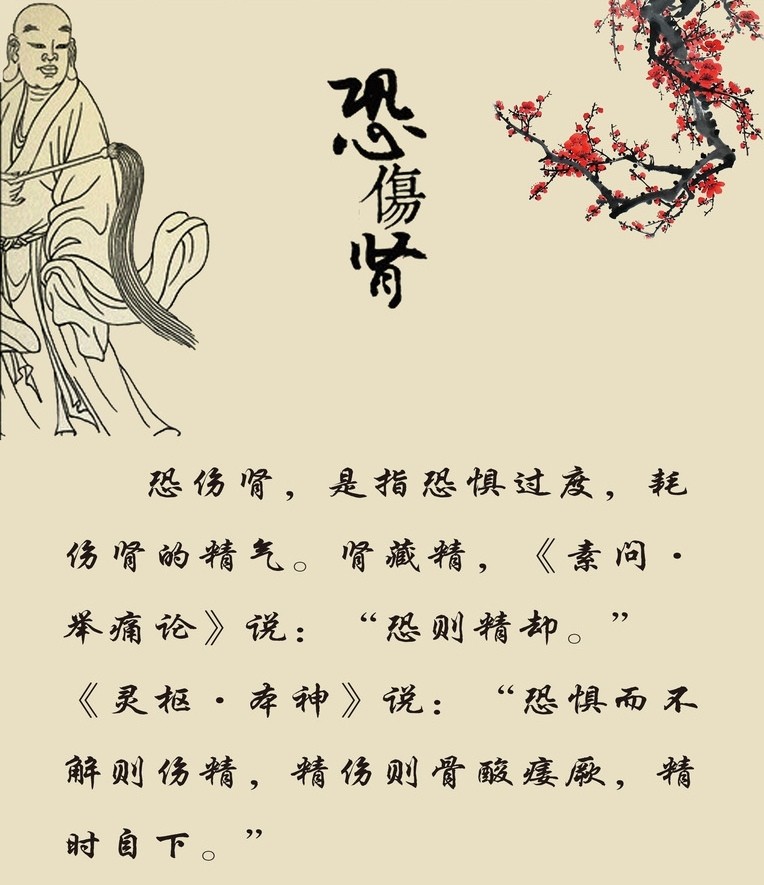 恐傷肾
恐伤肾，是指恐惧过度，耗
伤肾的精气。肾藏精，《素问·
举痛论》说：“恐则精却。”
《灵枢·本神》说：“恐惧而不
解则伤精，精伤则骨酸痿厥，精
时自下。”